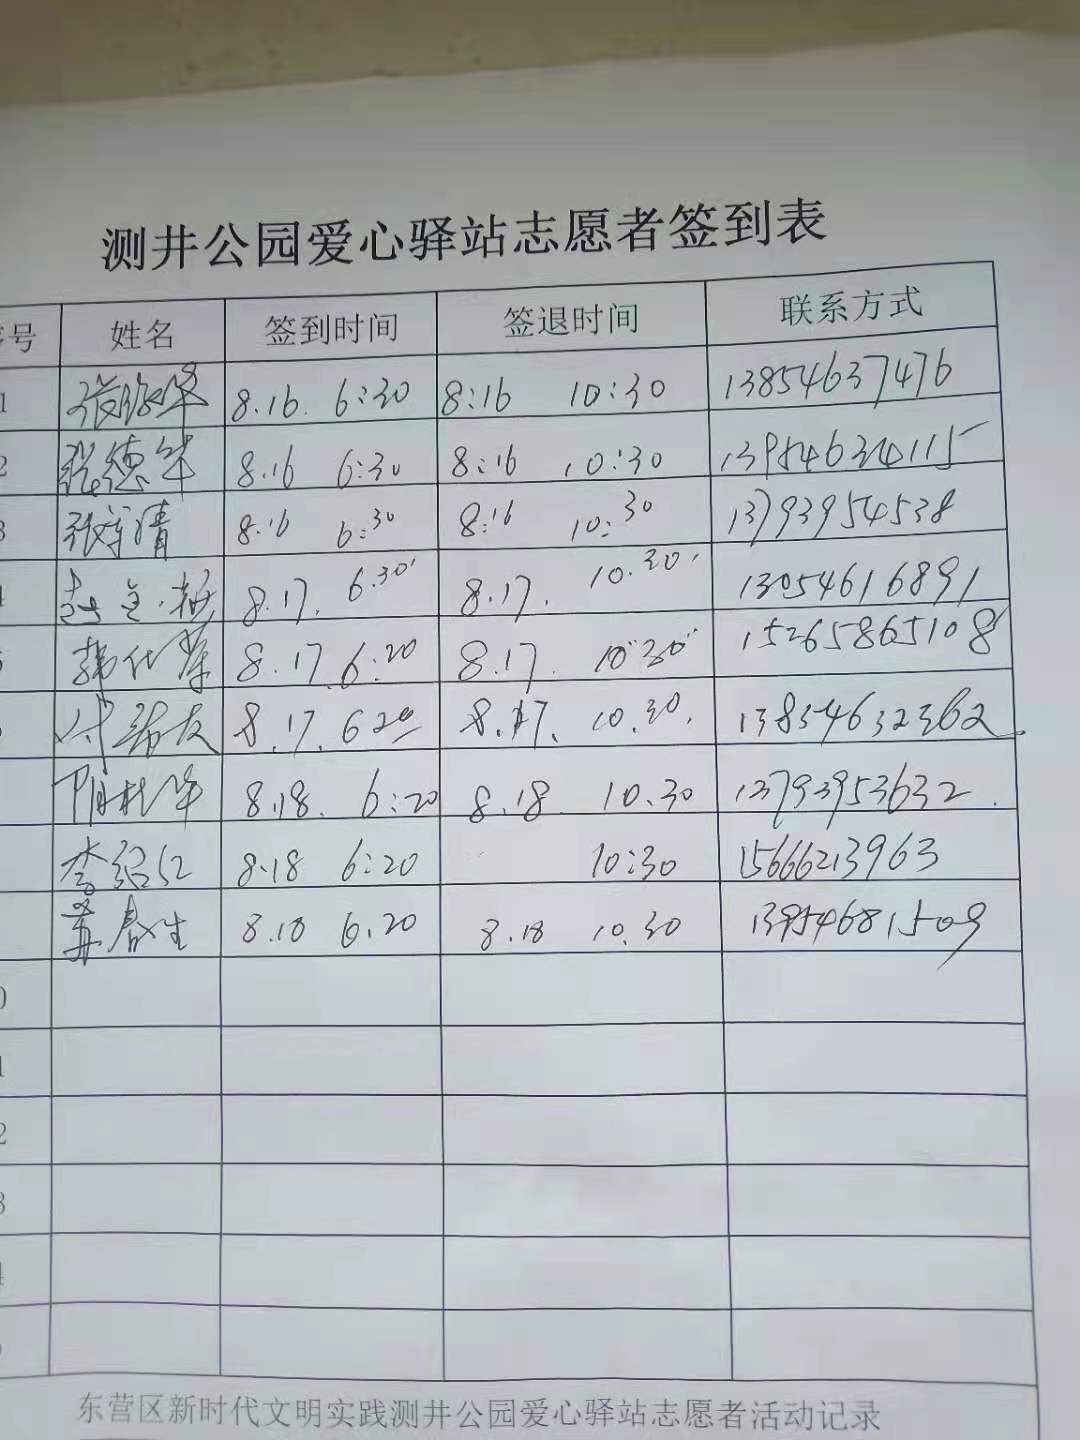 测井公园爱心驿站志愿者签到表
号 姓名 签到时间 签退时间 联系方式
1 8.16 6:30 8:16 10:30 13854637476
2 张德华 8.16 6:30 8:16 10:30 13954634115
3 张宝清 8:16 6:30 8:16 10:30 13793954538
8.17. 6.30' 8.17. 10.30' 13054616891
8.17 6:20 8.17. 10"30" 15265865108
付 友 8.17. 620 8.17. 10.30. 13854632362
8.18. 6:20 8.18 10.30 13793953632.
李绍红 8.18 6:20 10:30 15666213963
苏春生 8.18 6.20 8.18 10.30 13954681509
0
1
2
3
4
东营区新时代文明实践测井公园爱心驿站志愿者活动记录